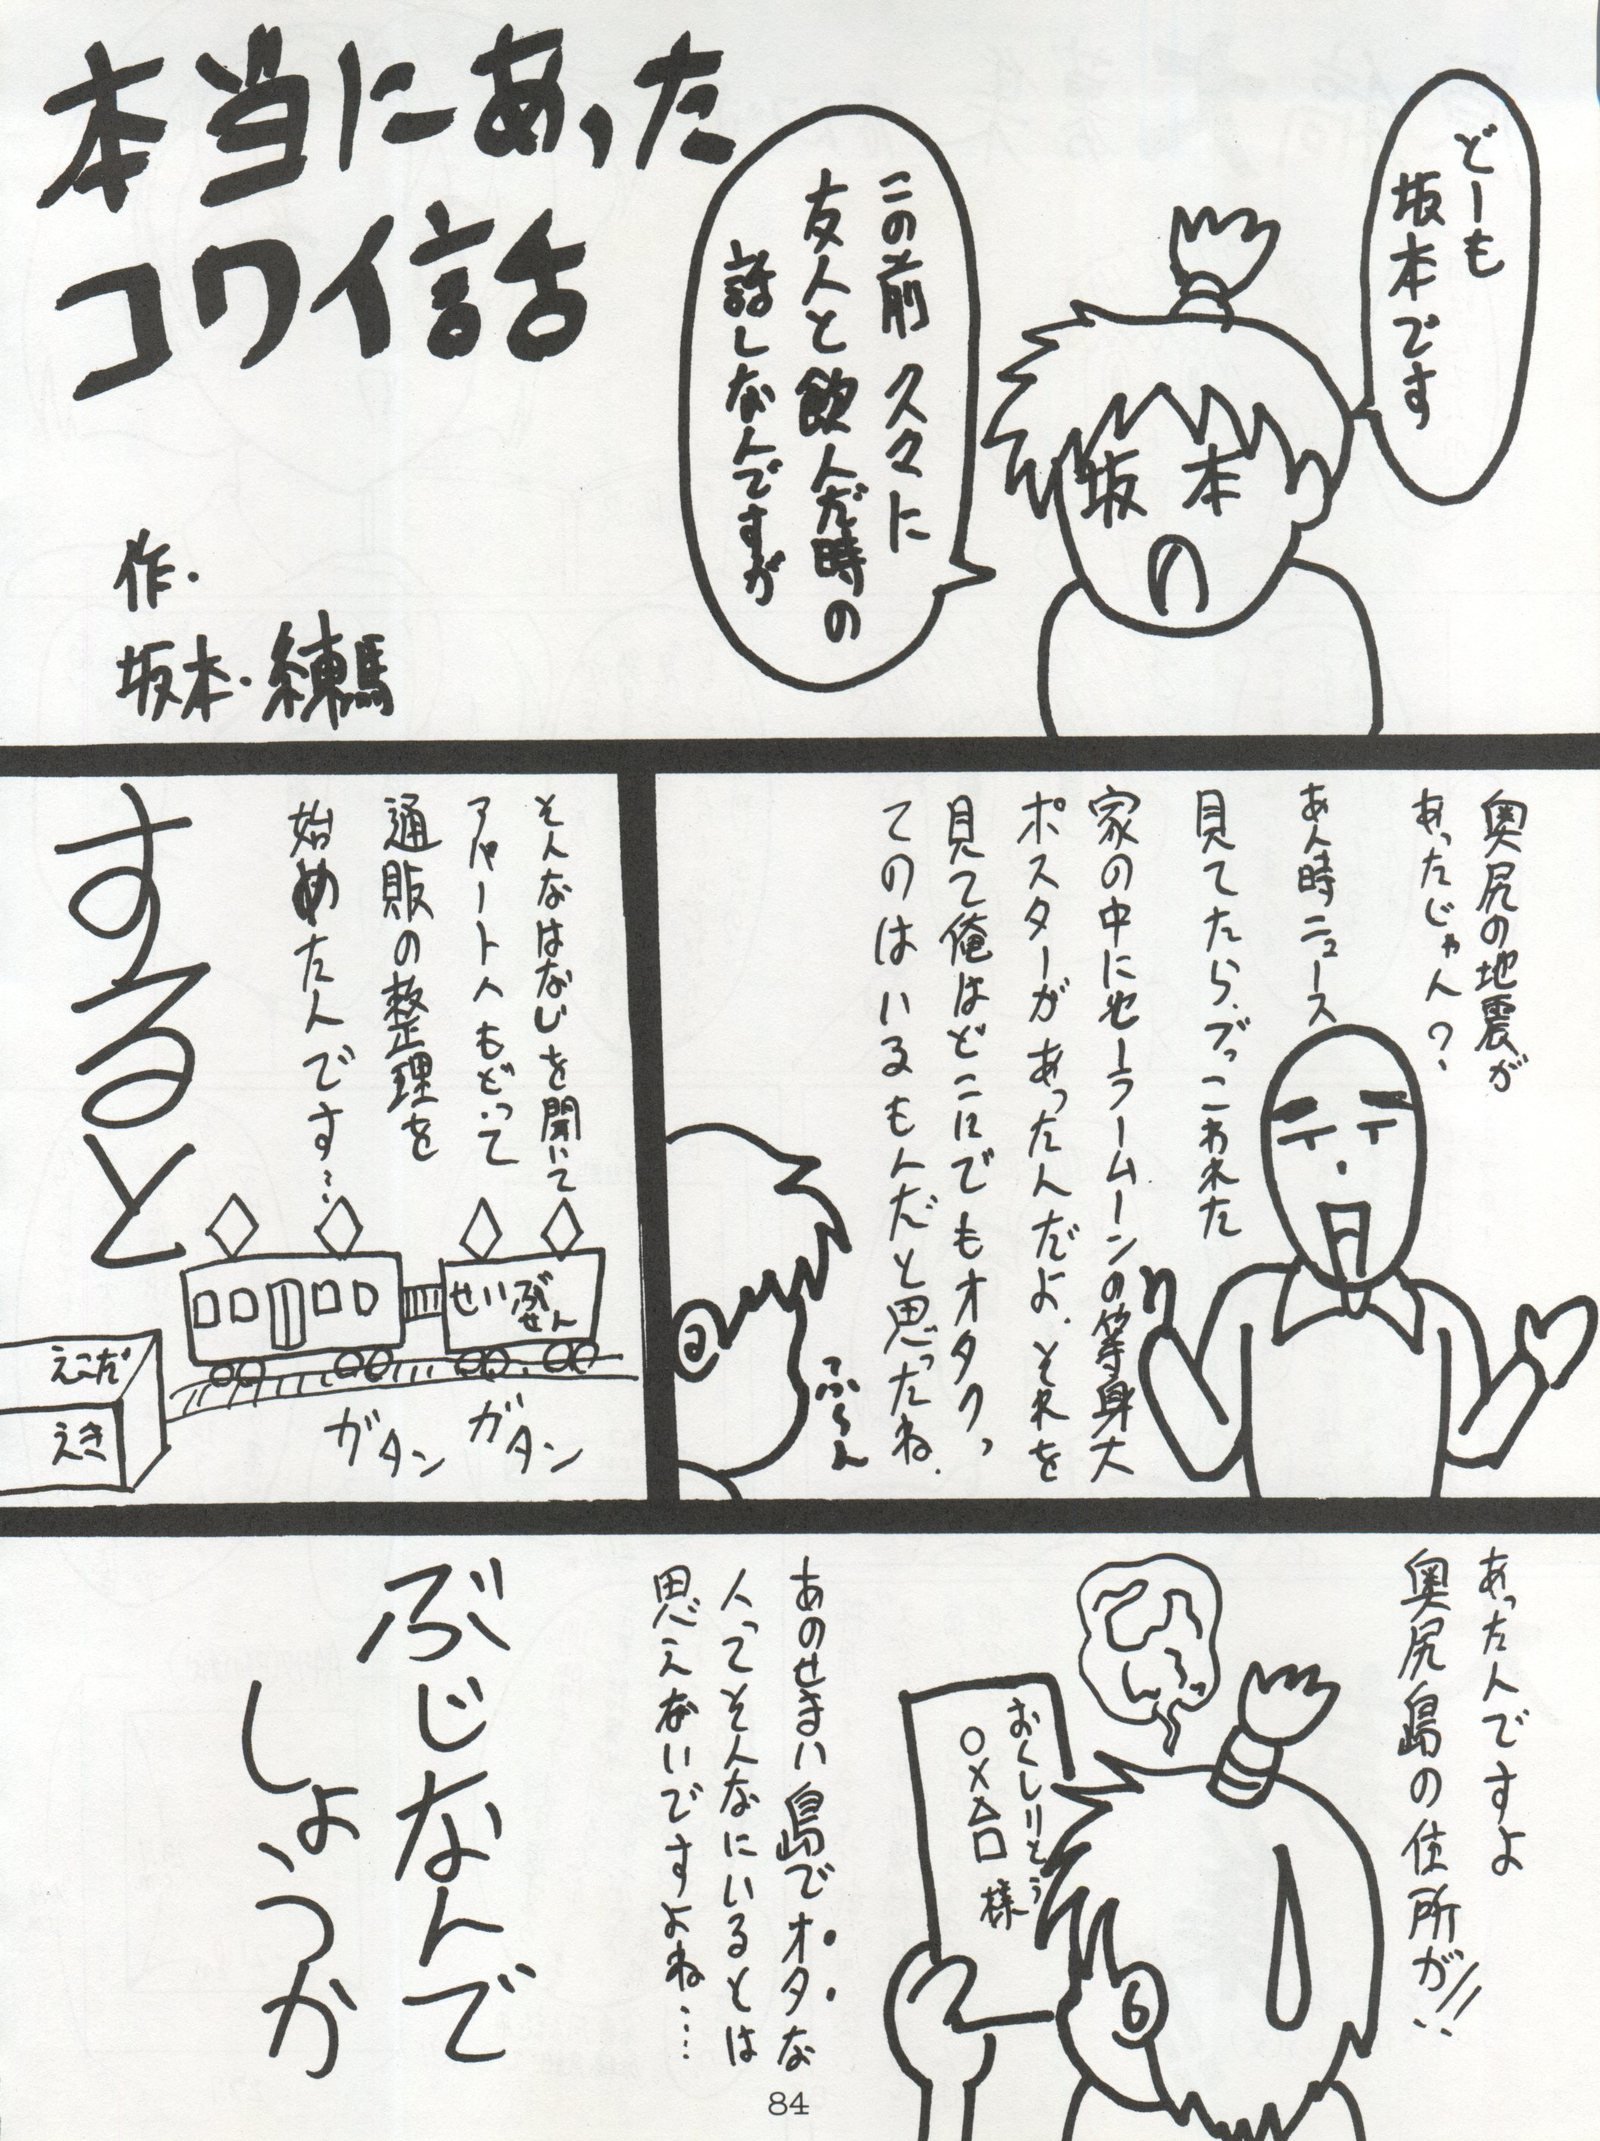 本当にあった
コワイ話
作・
坂本・練馬
どーも
坂本です
坂 本
この前 久々に
友人と飲んだ時の
話しなんですが
奥尻の地震が
あったじゃん?
あん時ニュース
見てたら、ブっこわれた
家の中にセーラームーンの等身大
ポスターがあったんだよ、それを
見て俺はどこにでもオタクっ
てのはいるもんだと思ったね。
ふ〜ん
そんなはなしを聞いて
アパートへもどって
通販の整理を
始めたんです…
すると
せいぶ
せん
えこだ
えき
ガタン
ガタン
あったんですよ
奥尻島の住所が!!
おくしりとう
○×△□ 様
あのせまい島でオタな
人ってそんなにいるとは
思えないですよね…
ぶじなんで
しょうか
84